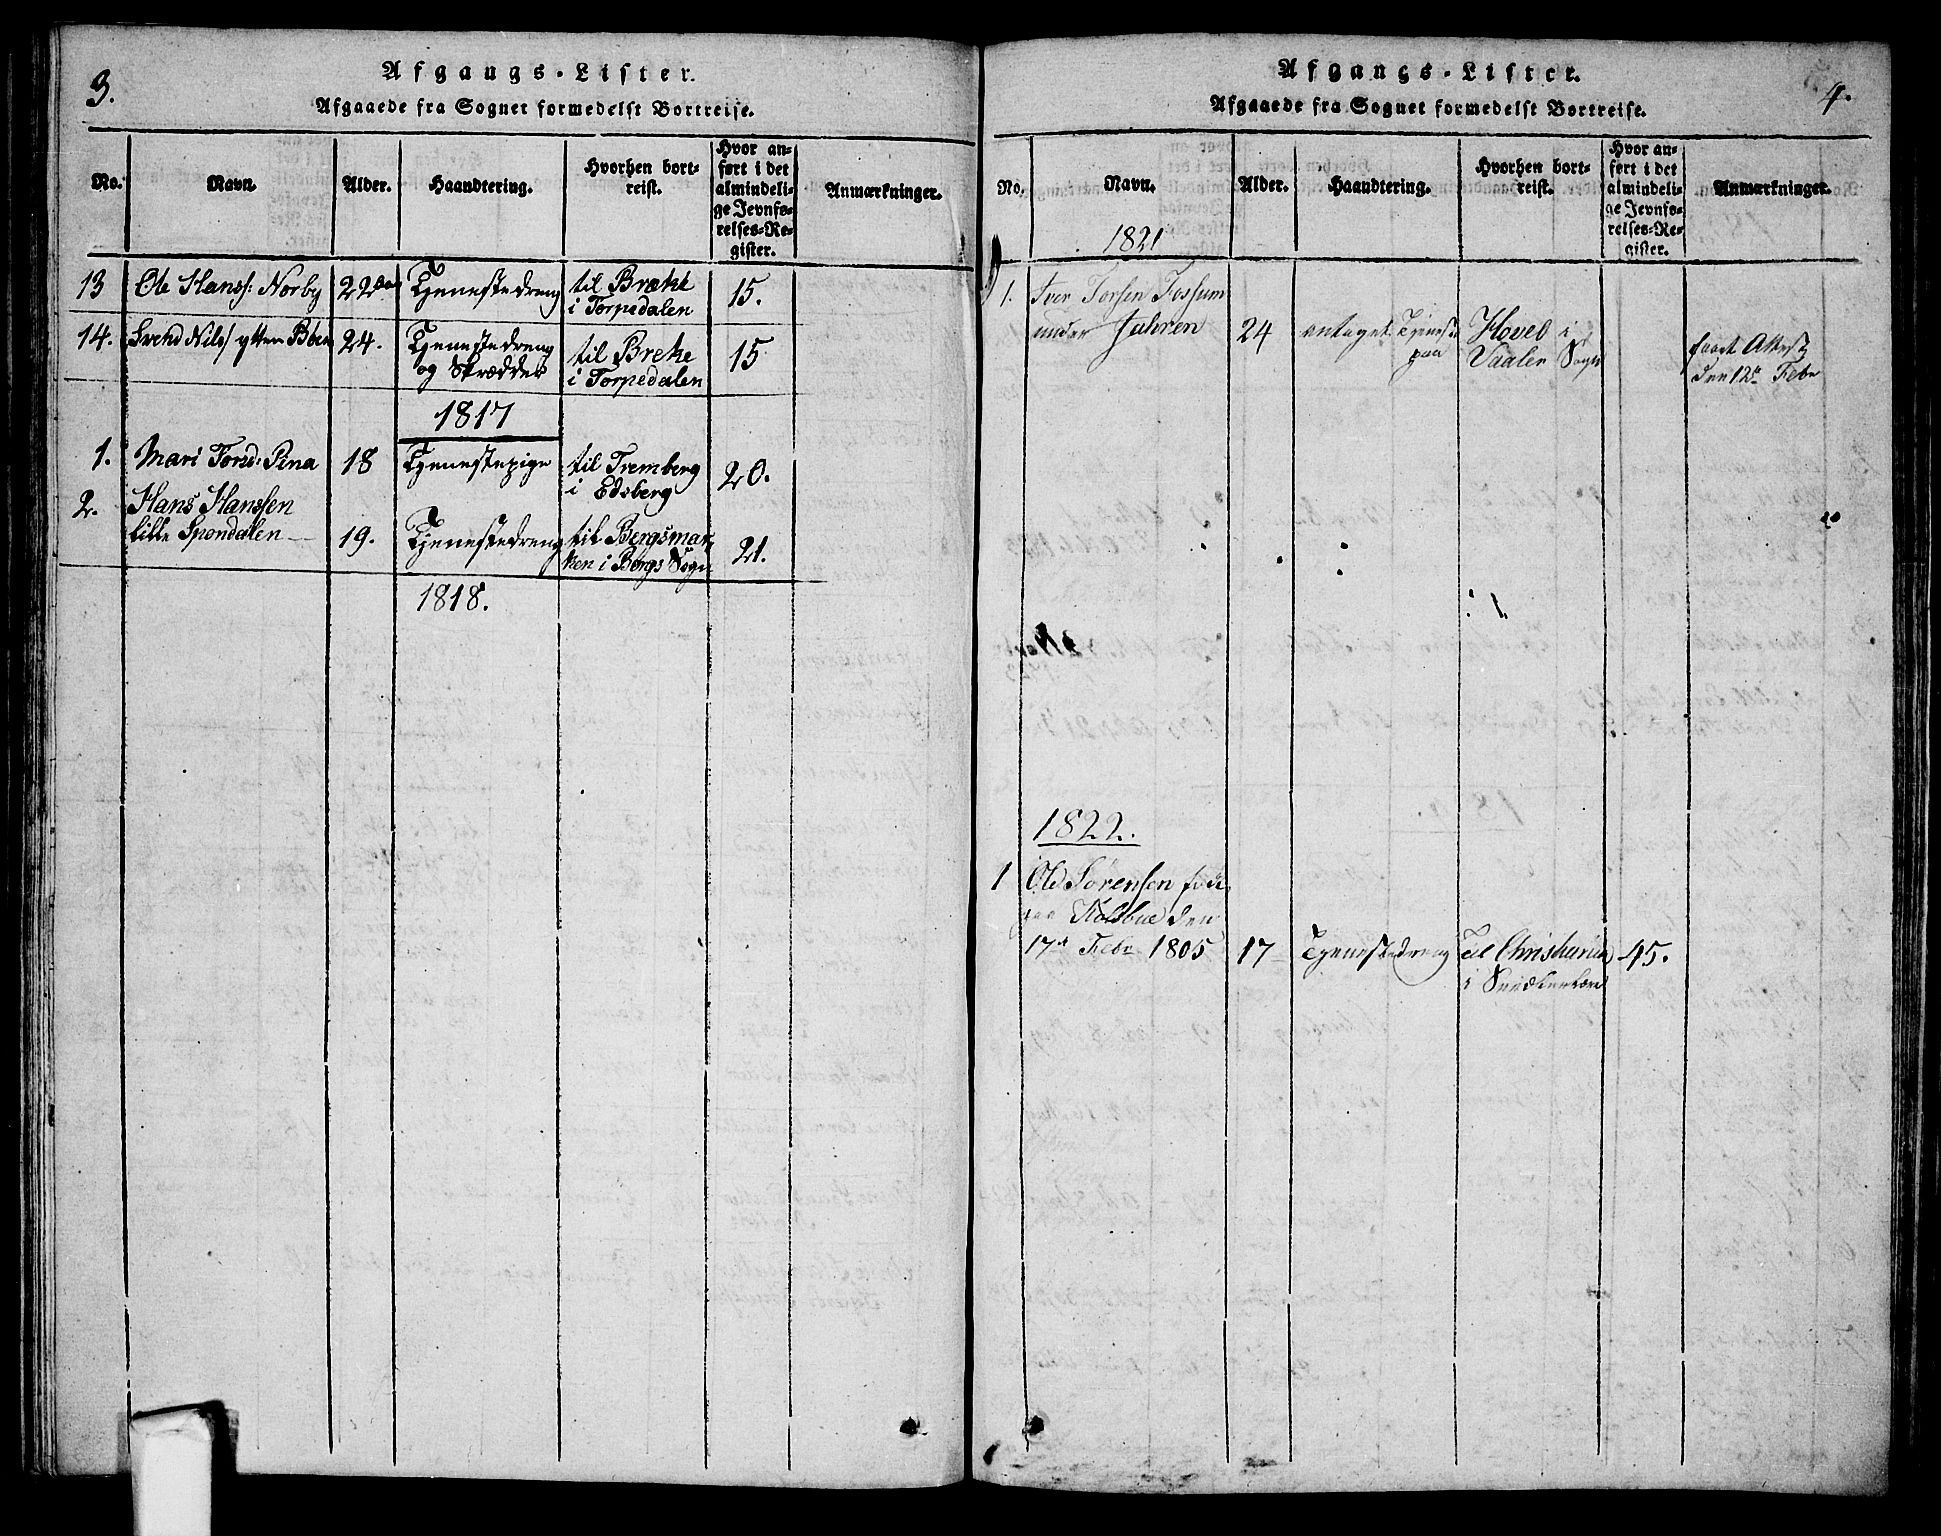 3.
Afgangs-Lister.
Afgaaede fra Sognet formedelst Bortreise.
No. Navn. Alder. Haandtering. Hvorhen bortreist. Hvor anført i det almindelige Jevnførelses-Register. Anmærkninger.
13 Ole Hanss: Norby 22 Tjenestedreng til Brække 15.
i Torpedalen
14. Svend Nils ytten Bøen 24. Tjenestedreng til Breke 15
og Skrædder i Torpedalen
1817
1. Mari Tord: Pina 18 Tjenestepige til Tremberg 20.
i Edsberg
2. Hans Hanssen
lille Spondalen 19. Tjenestedreng til Bergsmar- 21.
ken i Bergs Sogn
1818.
4.
Afgangs-Lister.
Afgaaede fra Sognet formedelst Bortreise.
No. Navn. Alder. Haandtering. Hvorhen bortreist. Hvor anført i det almindelige Jevnførelses-Register. Anmærkninger.
1821
1. Iver Torsen Fossum
under Jahren 24 antaget Tjeneste Hovel i faaet Attest
paa Vaaler Sogn den 12te Febr
1822.
1 Ole Sørensen født
paa Kolsbue den
17de Febr 1805 17 Tjenestedreng Til Christiania 45.
i Snedkerlære